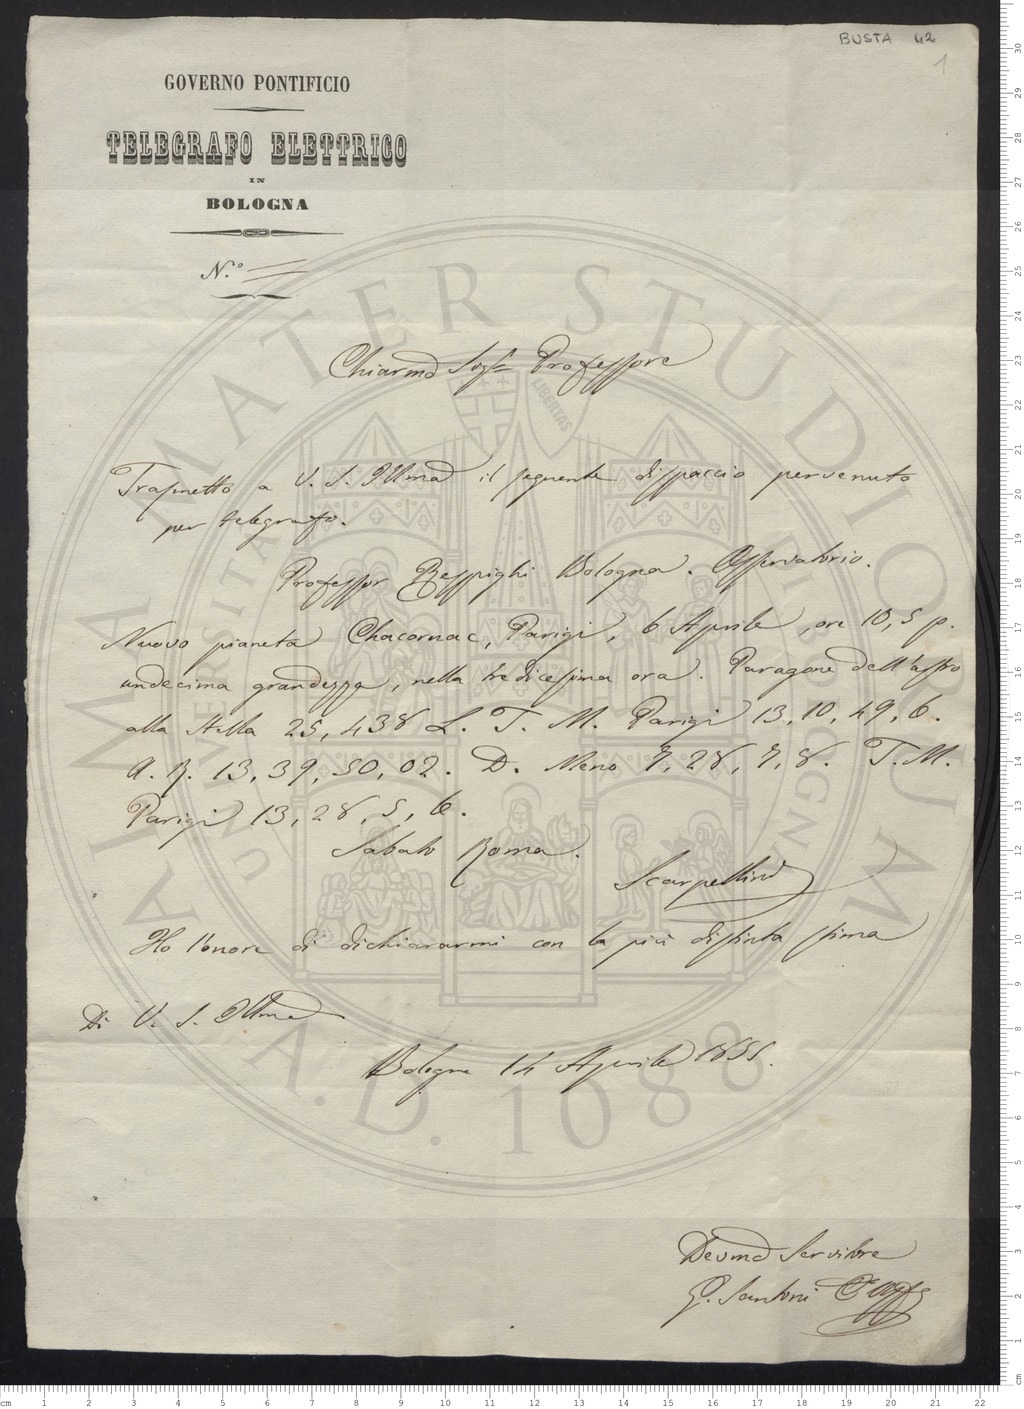 BUSTA 42
1
GOVERNO PONTIFICIO
TELEGRAFO ELETTRICO
IN
BOLOGNA
N.º
Chiarmo Sigr Professore
Trasmetto a V. S. Illma il seguente dispaccio pervenuto
per telegrafo.
Professor Respighi Bologna. Osservatorio.
Nuovo pianeta Chacornac, Parigi, 6 Aprile, ore 10,5 p.
undecima grandezza, nella tredicesima ora. Paragone dell'astro
alla stella 25,438 L. T. M. Parigi 13, 10, 49, 6.
A. R. 13, 39, 50, 02. D. Meno 7, 28, 7, 8. T. M.
Parigi 13, 28, 5, 6.
Sabato Roma.
Scarpellini
Ho l'onore di dichiararmi con la più distinta stima
Di V. S. Illma
Bologna 14 Aprile 1855.
Devmo Servitore
G. Santoni
ALMA MATER STUDIORUM
UNIVERSITA DI BOLOGNA
LIBERTAS
A.D. 1088